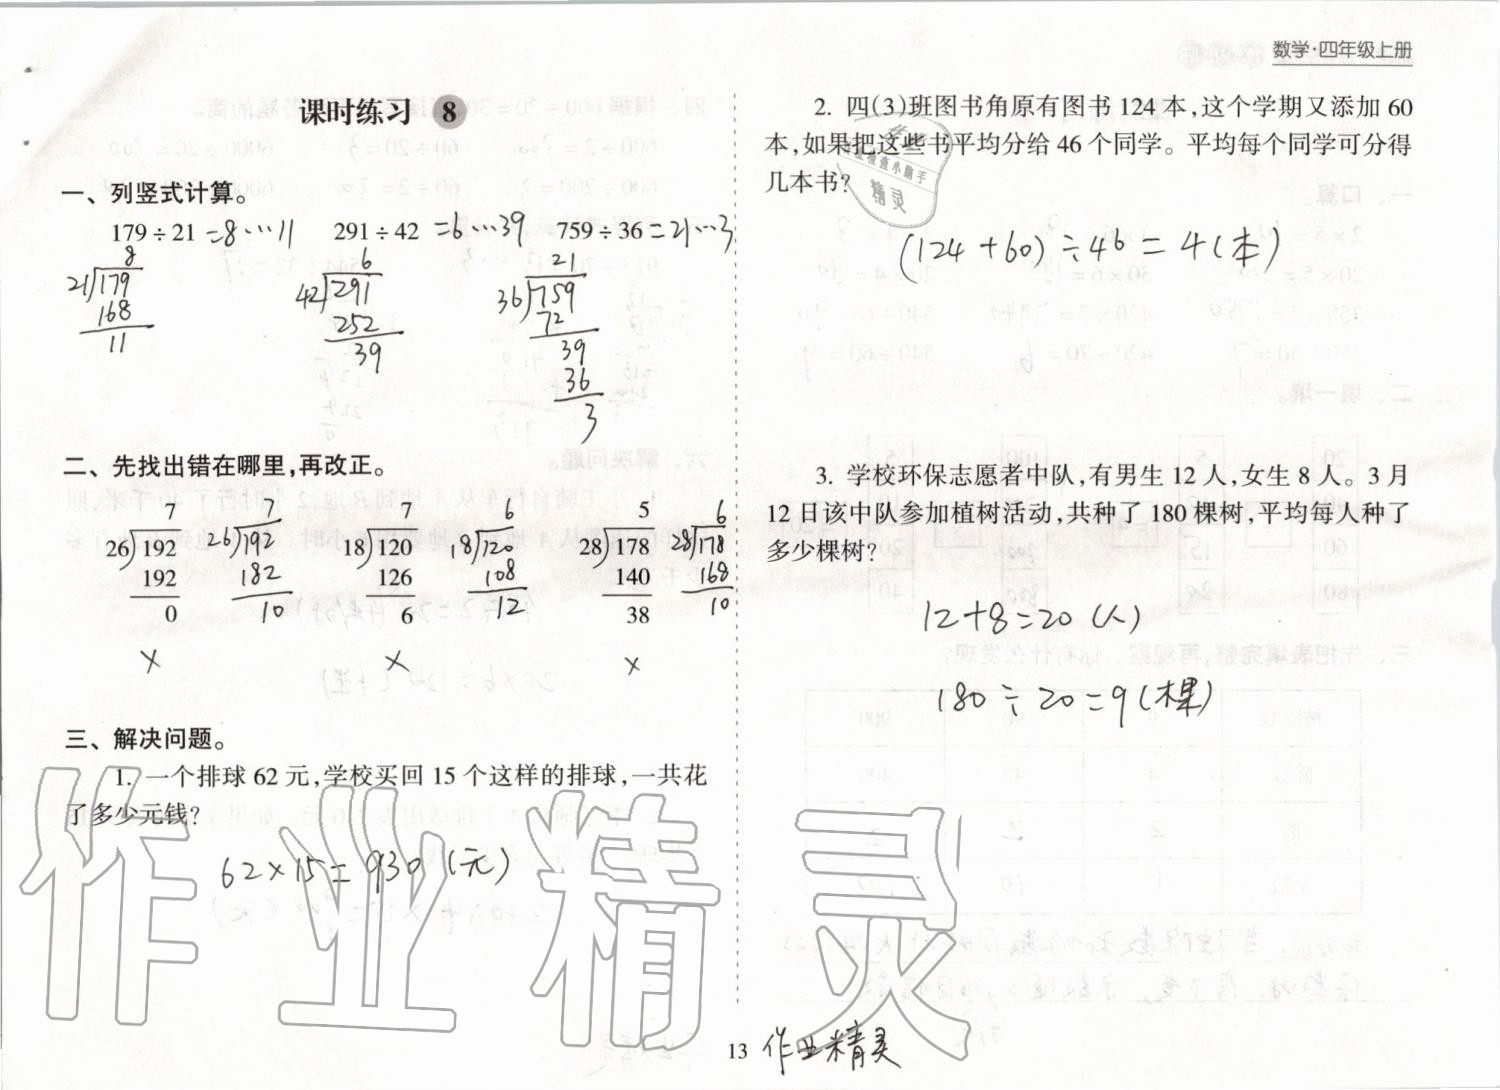 数学·四年级上册
课时练习 8
一、列竖式计算。
179÷21=8…11 291÷42=6…39 759÷36=21…3
8
21 179
168
11
6
42 291
252
39
21
36 759
72
39
36
3
二、先找出错在哪里,再改正。
7
26 192
192
0
×
7
21 192
182
10
7
18 120
126
6
×
6
18 120
108
12
5
28 178
140
38
×
6
28 178
168
10
三、解决问题。
1. 一个排球 62 元,学校买回 15 个这样的排球,一共花
了多少元钱?
62×15=930(元)
2. 四(3)班图书角原有图书 124 本,这个学期又添加 60
本,如果把这些书平均分给 46 个同学。平均每个同学可分得
几本书?
(124+60)÷46=4(本)
3. 学校环保志愿者中队,有男生 12 人,女生 8 人。3 月
12 日该中队参加植树活动,共种了 180 棵树,平均每人种了
多少棵树?
12+8=20(人)
180÷20=9(棵)
13 作业精灵
作业精灵